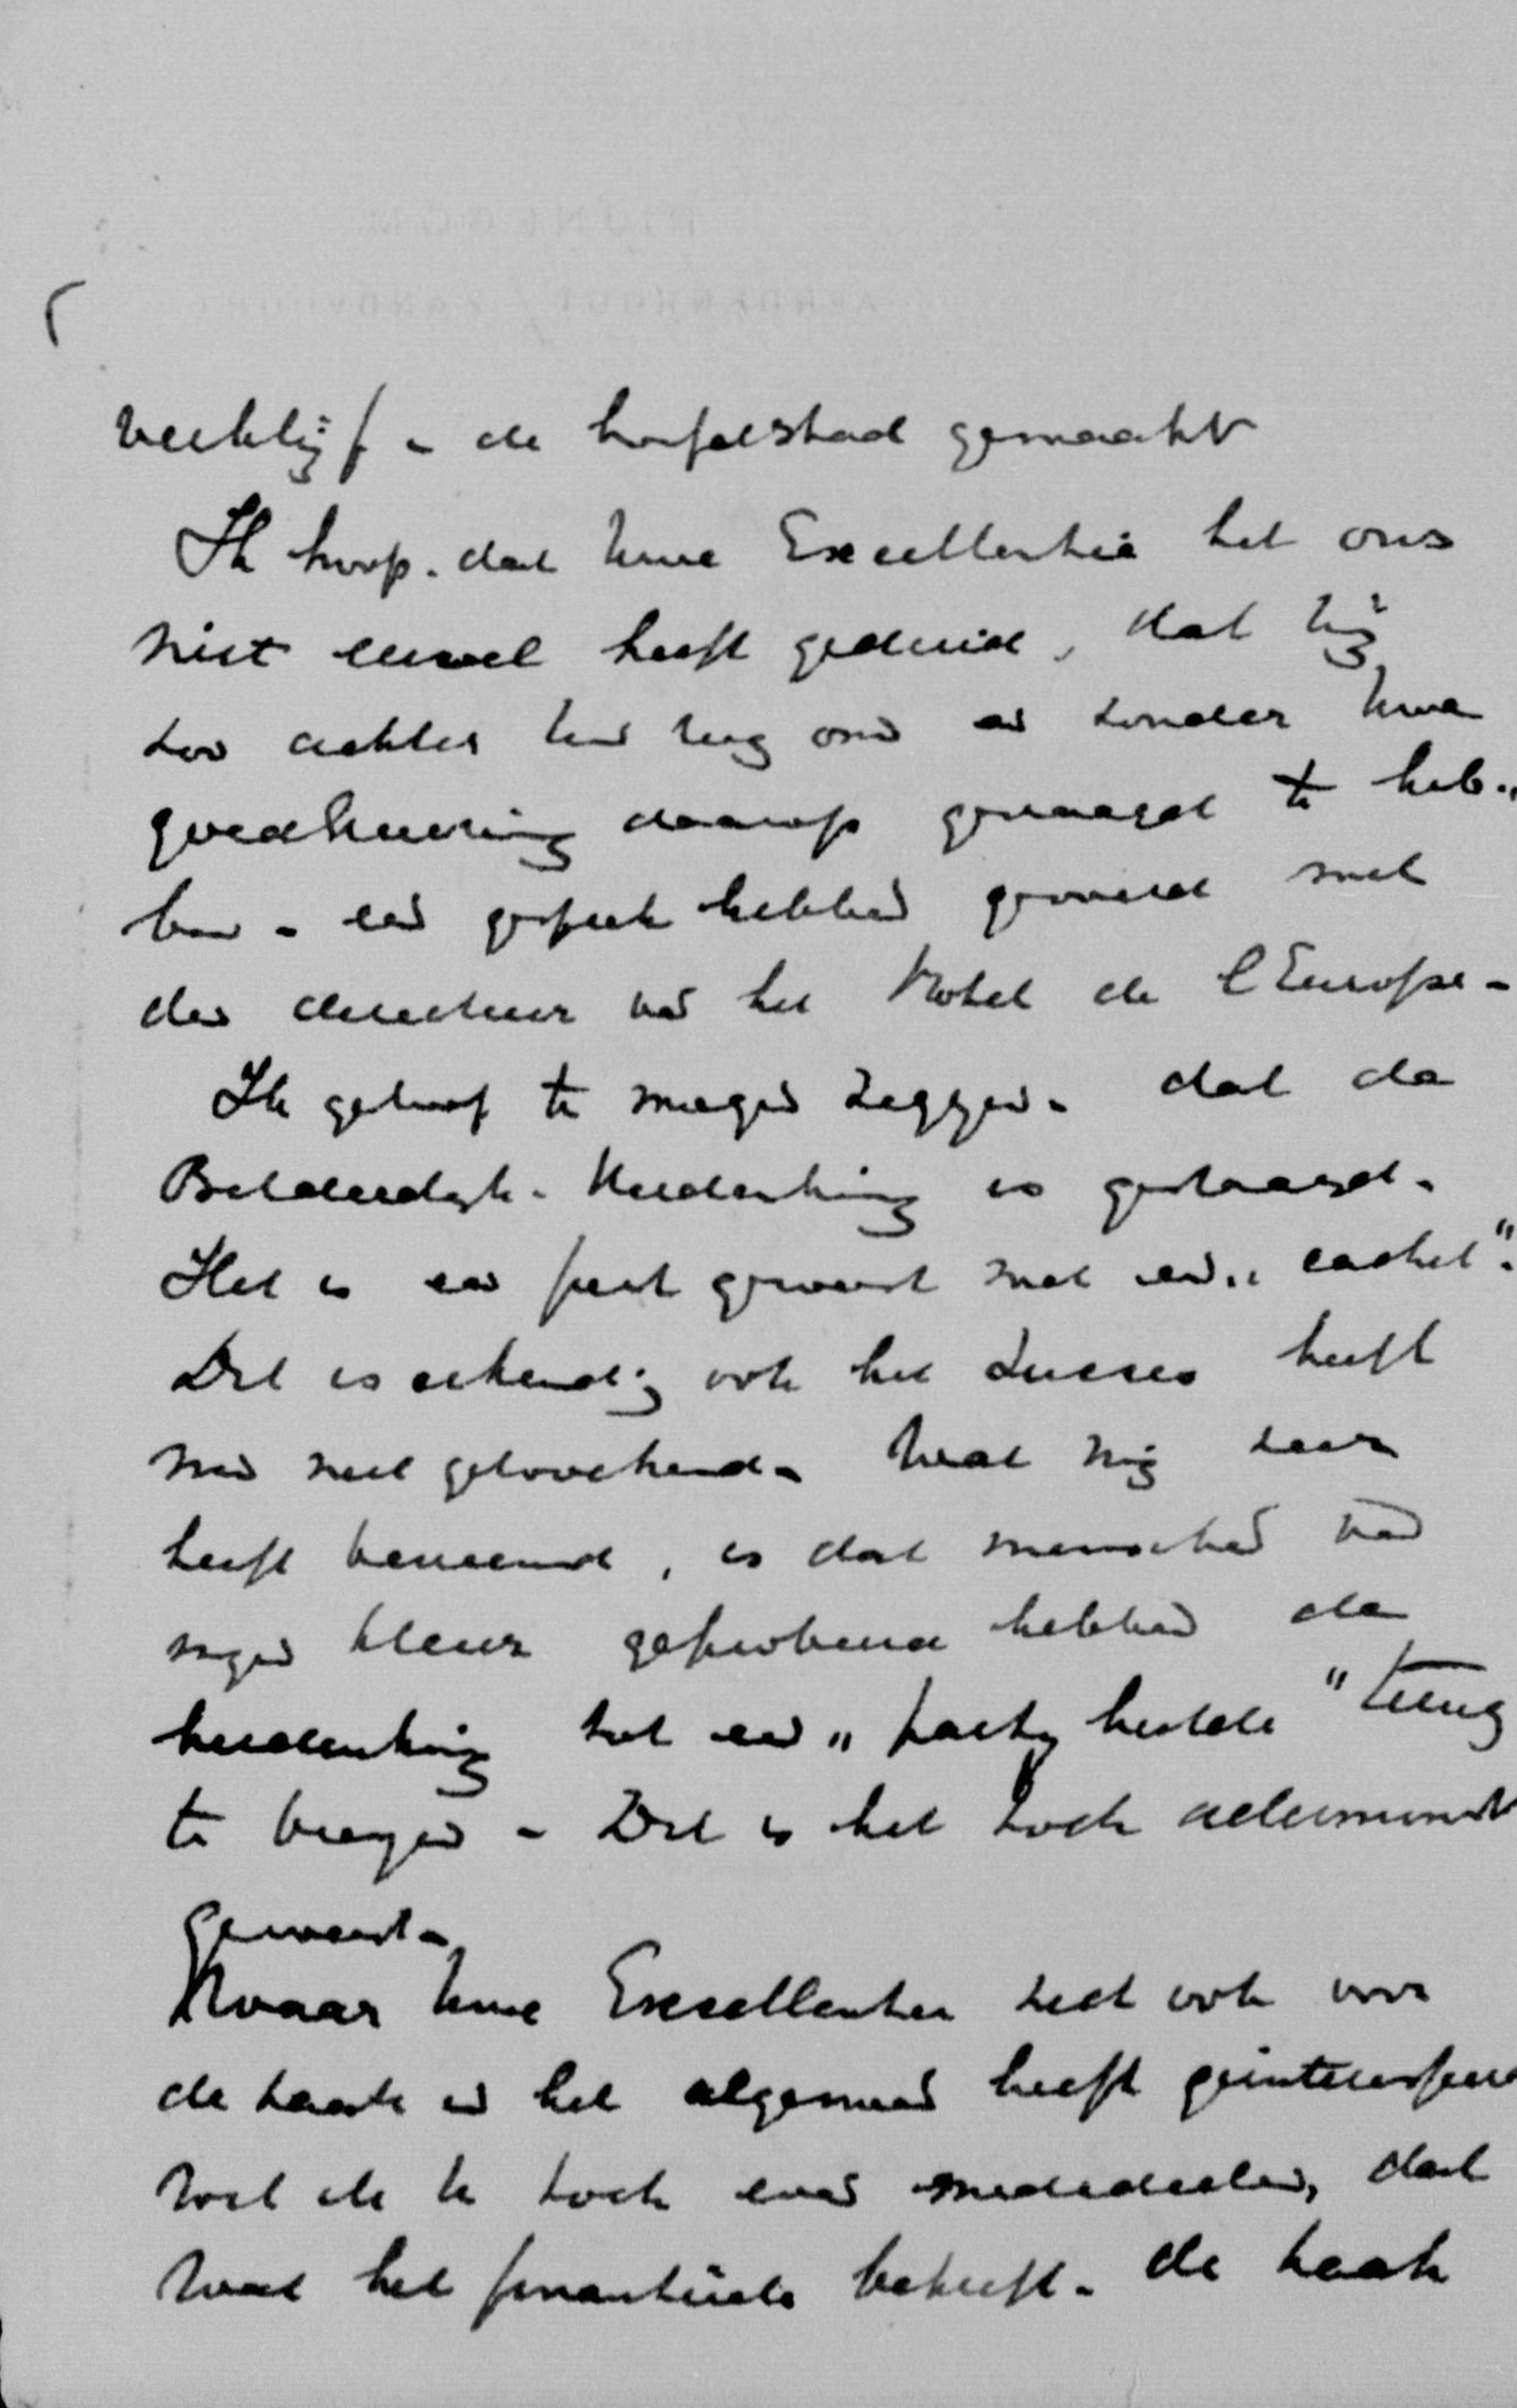 verblijf in de hofstad gemaakt
Ik hoop dat Uwe Excellentie het ons
niet euvel heeft geduid, dat wij
zoo achter Uw rug om en zonder Uwe
goedkeuring daarop gevraagd te heb„
ben – een gesprek hebben gevoerd met
den directeur van het Hotel de l'Europe –
Ik geloof te mogen zeggen – dat de
Bilderdijk-Herdenking is geslaagd.
Het is een feest geweest met een „cachet".
Dit is ook het succes heeft
men niet geloochend – Wat mij zeer
heeft, is dat menschen van
eigen kleur geprobeerd hebben de
herdenking tot een „partij" terug
te brengen – Dit is het toch allerminst
geweest –
Waar Uwe Excellentie zich ook voor
de zaak in het algemeen heeft
wil ik U toch even mededeelen, dat
wat het financiëele betreft – de zaak